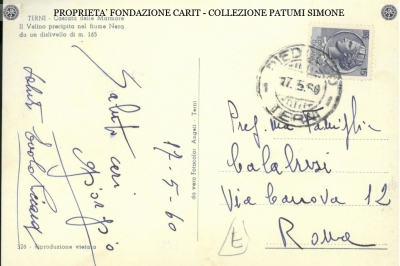 PROPRIETA' FONDAZIONE CARIT - COLLEZIONE PATUMI SIMONE
TERNI - Cascata delle Marmore
Il Velino precipita nel fiume Nera
da un dislivello di m. 165
PIEDILUCO
17.5.60
TERNI
17-5-60
Saluti cari
Giorgio
Saluti
da vera Fotocolor Angeli - Terni
Calabresi
Via Canova 12
Roma
326 - Riproduzione vietata